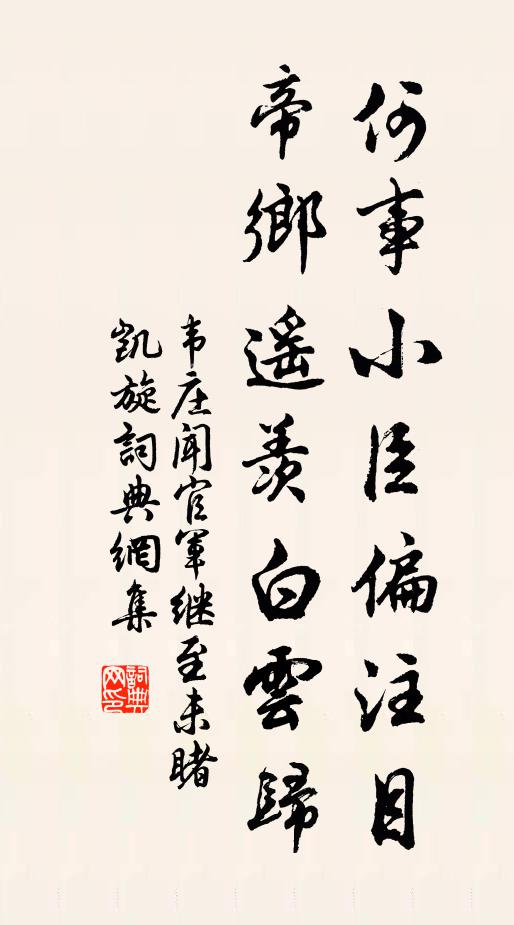 何事小臣偏注目
帝鄉遥羨白雲歸
韦庄闻官軍继至未睹
凯旋詞典網集
詞典网印